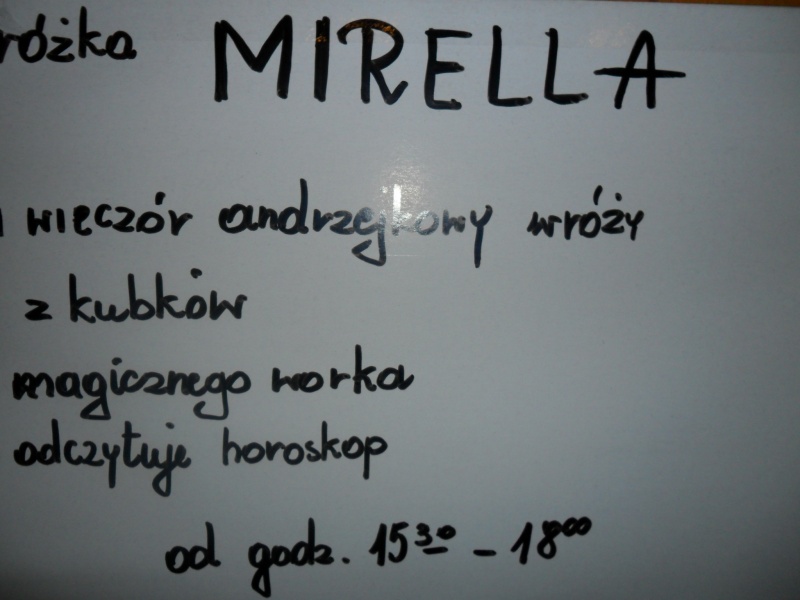 różka MIRELLA
wieczór andrzejkowy wróży
z kubków
magicznego worka
odczytuje horoskop
od godz. 15³⁰ - 18⁰⁰